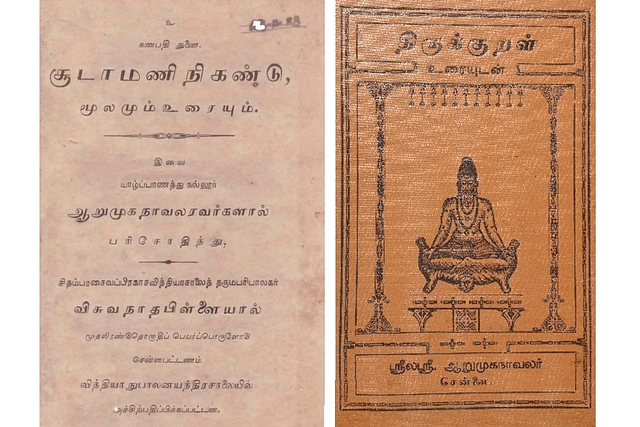 உ
கணபதி துணை.
சூடாமணி நிகண்டு,
மூலமும் உரையும்.
இவை
யாழ்ப்பாணத்து நல்லூர்
ஆறுமுகநாவலரவர்களால்
பரிசோதித்து,
சிதம்பரசைவப்பிரகாசவித்தியாசாலைத் தருமபரிபாலகர்
விசுவநாதபிள்ளையால்
முதலிரண்டுதொகுதிப் பெயர்ப்பொருளோடு
சென்னபட்டணம்
வித்தியாநுபாலனயந்திரசாலையில்
அச்சிற்பதிப்பிக்கப்பட்டன.
திருக்குறள்
உரையுடன்
ஸ்ரீலஸ்ரீ. ஆறுமுகநாவலர்
சென்னை.